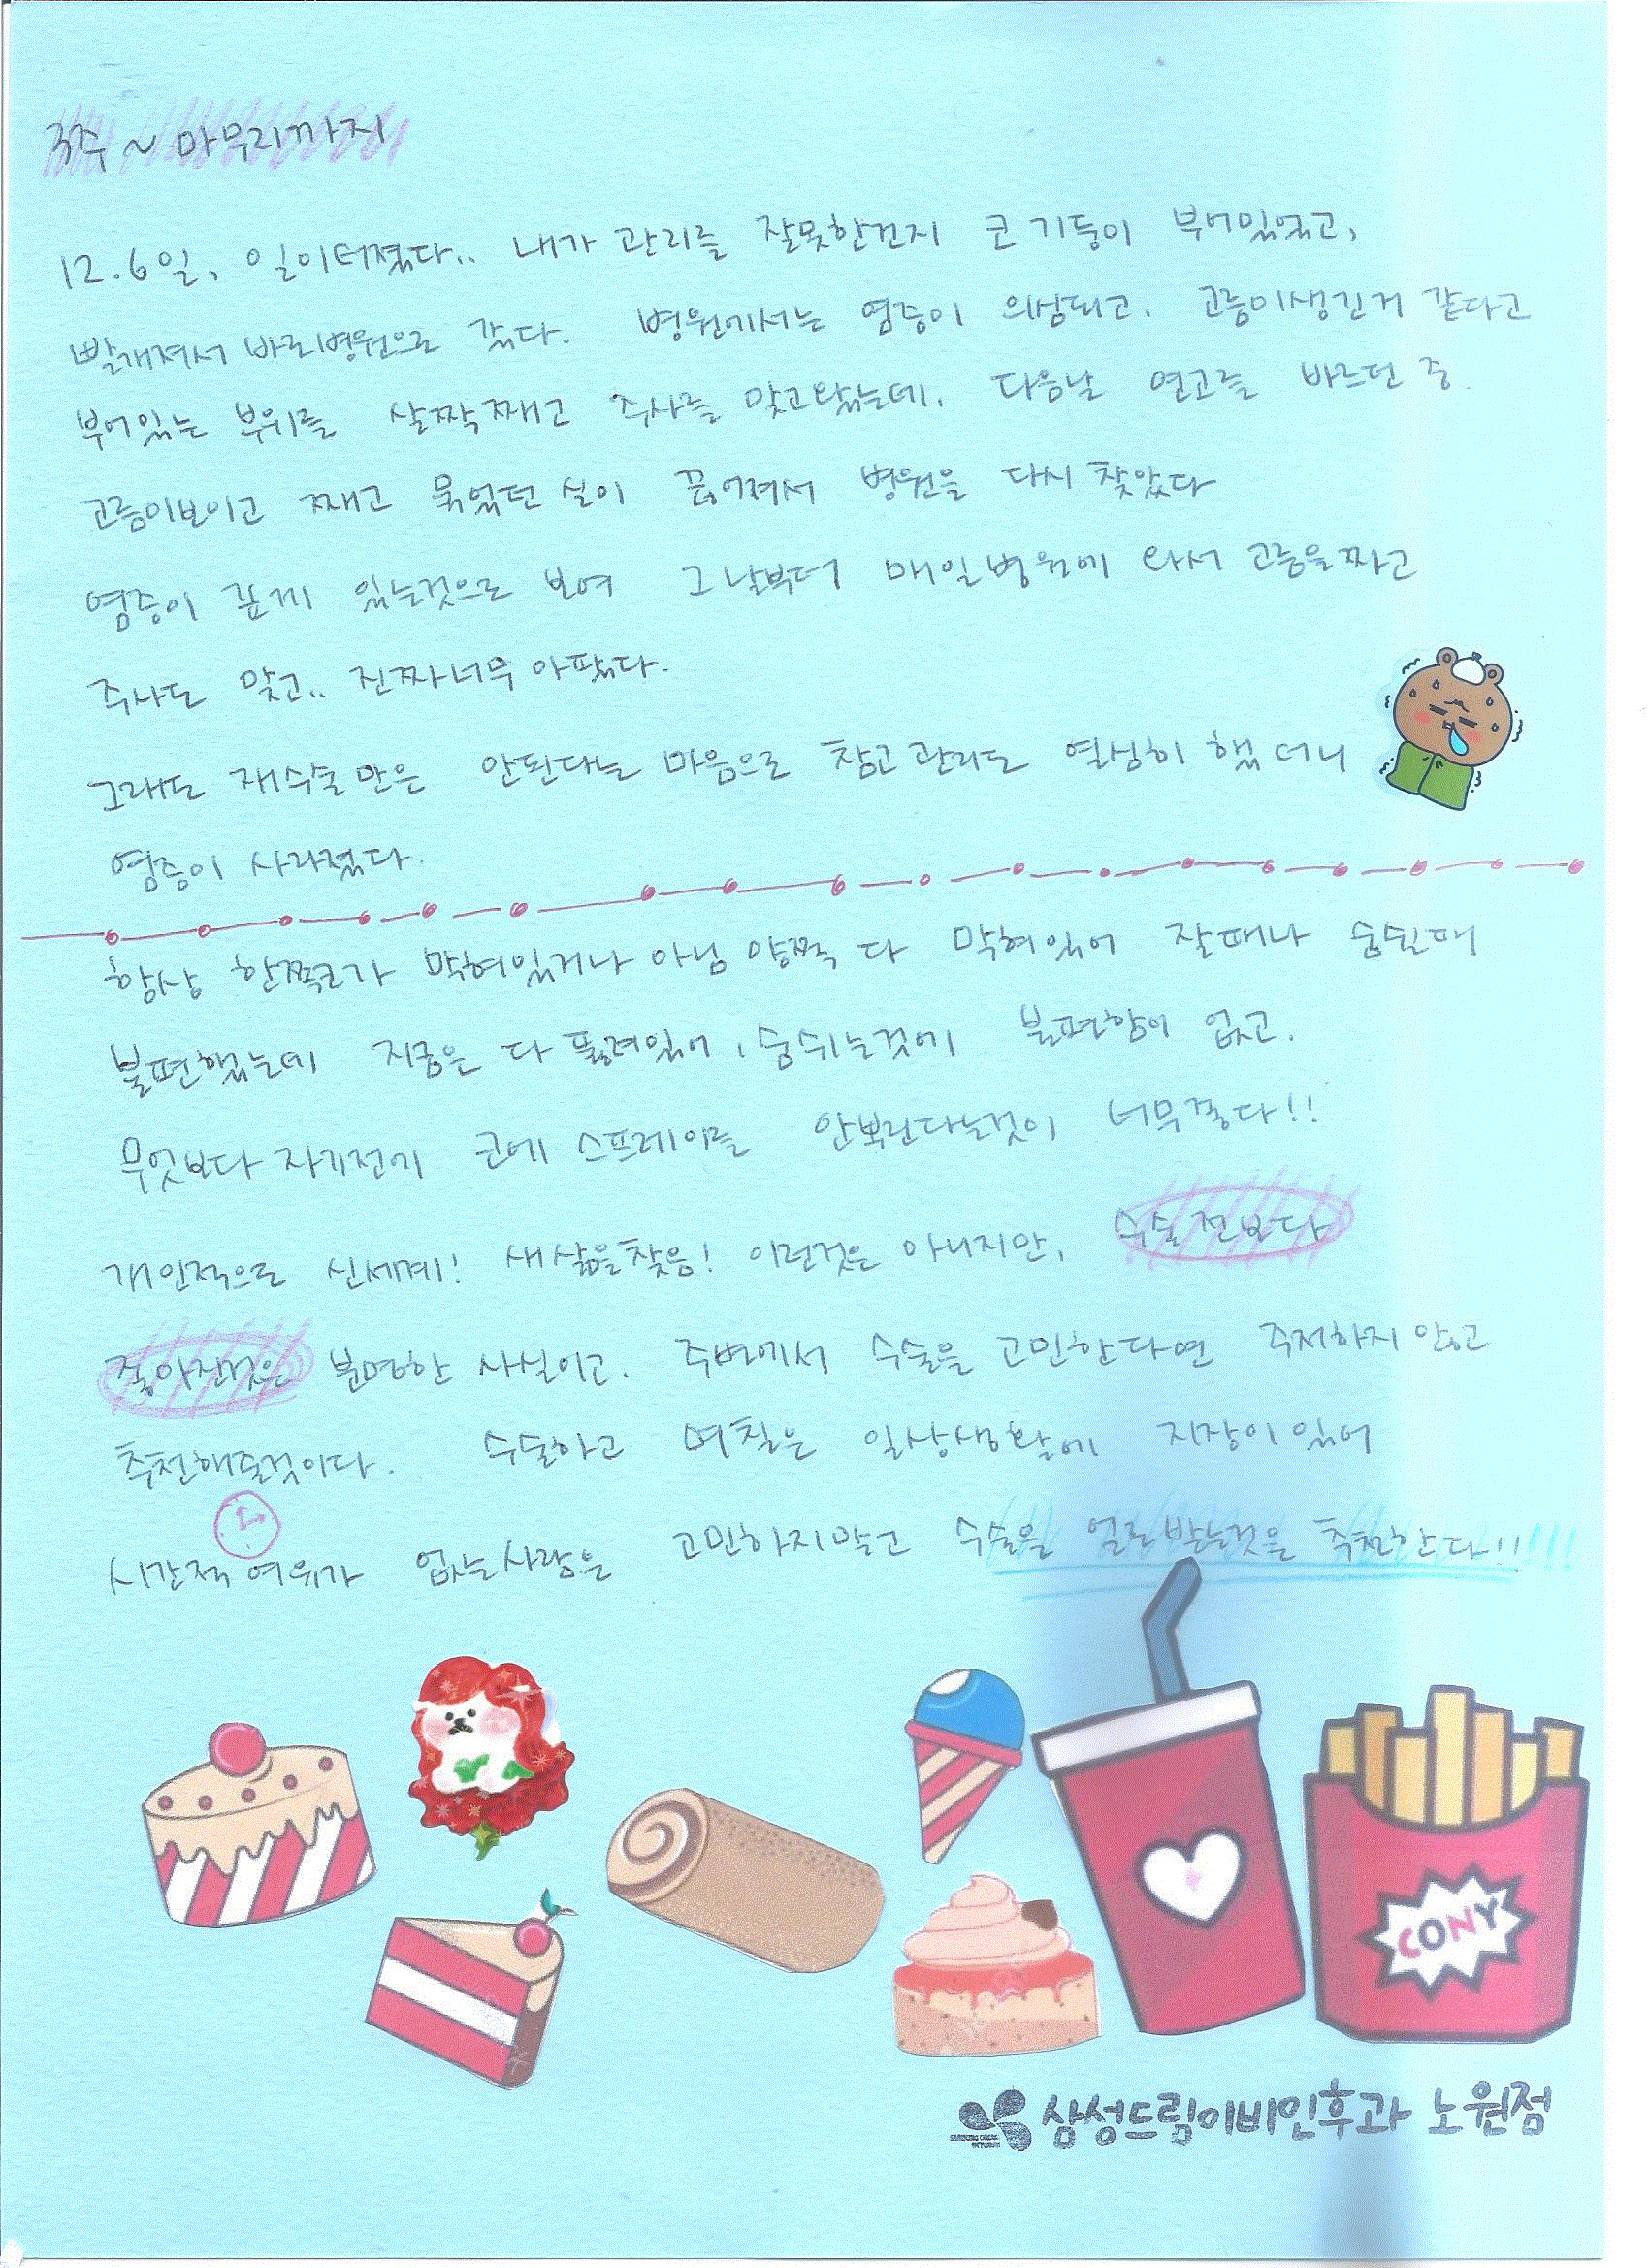 3주 ~ 마무리까지
12.6일, 일이터졌다.. 내가 관리를 잘못한건지 코 기둥이 부어있었고,
빨개져서 바로병원으로 갔다. 병원에서는 염증이 의심되고, 고름이생긴거 같다고
부어있는 부위를 살짝 째고 주사를 맞고왔는데, 다음날 연고를 바르던 중
고름이보이고 째고 묶었던 실이 끊어져서 병원을 다시 찾았다
염증이 깊게 있는것으로 보여 그날부터 매일병원에 와서 고름을짜고
주사도 맞고.. 진짜너무 아팠다.
그래도 재수술만은 안된다는 마음으로 참고 관리도 열심히 했더니
염증이 사라졌다.
항상 한쪽코가 막혀있거나 아님 양쪽 다 막혀있어 잘때나 숨쉴때
불편했는데 지금은 다 뚫려있어, 숨쉬는것에 불편함이 없고.
무엇보다 자기전에 코에 스프레이를 안뿌린다는것이 너무좋다!!
개인적으로 신세계! 새삶을찾음! 이런것은 아니지만, 수술 전보다
좋아진것은 분명한 사실이고. 주변에서 수술을 고민한다면 주저하지 않고
추천해줄것이다. 수술하고 며칠은 일상생활에 지장이있어
시간적 여유가 없는사람은 고민하지말고 수술을 얼른 받는것을 추천한다!!
CONY
삼성드림이비인후과 노원점